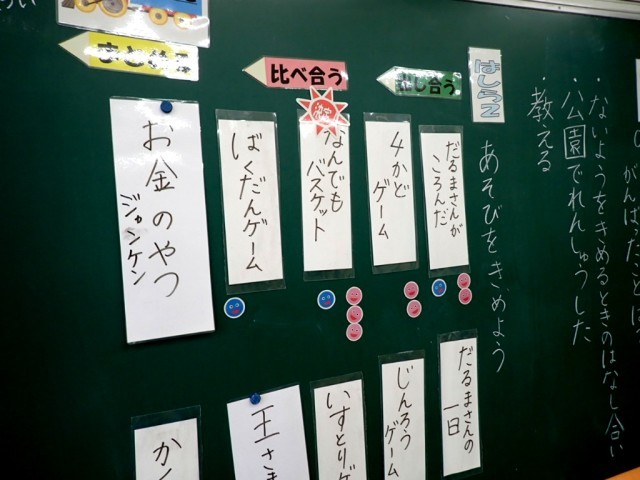 ないようをきめるときのはなし合い
・公園でれんしゅうした
・教える
はしら2
あそびをきめよう
出し合う
比べ合う
まとめる
だるまさんが
ころんだ
4かど
ゲーム
なんでも
バスケット
ばくだんゲーム
お金のやつ
ジャンケン
だるまさんの
一日
じんろう
ゲーム
いすとりゲ
王さま
かく